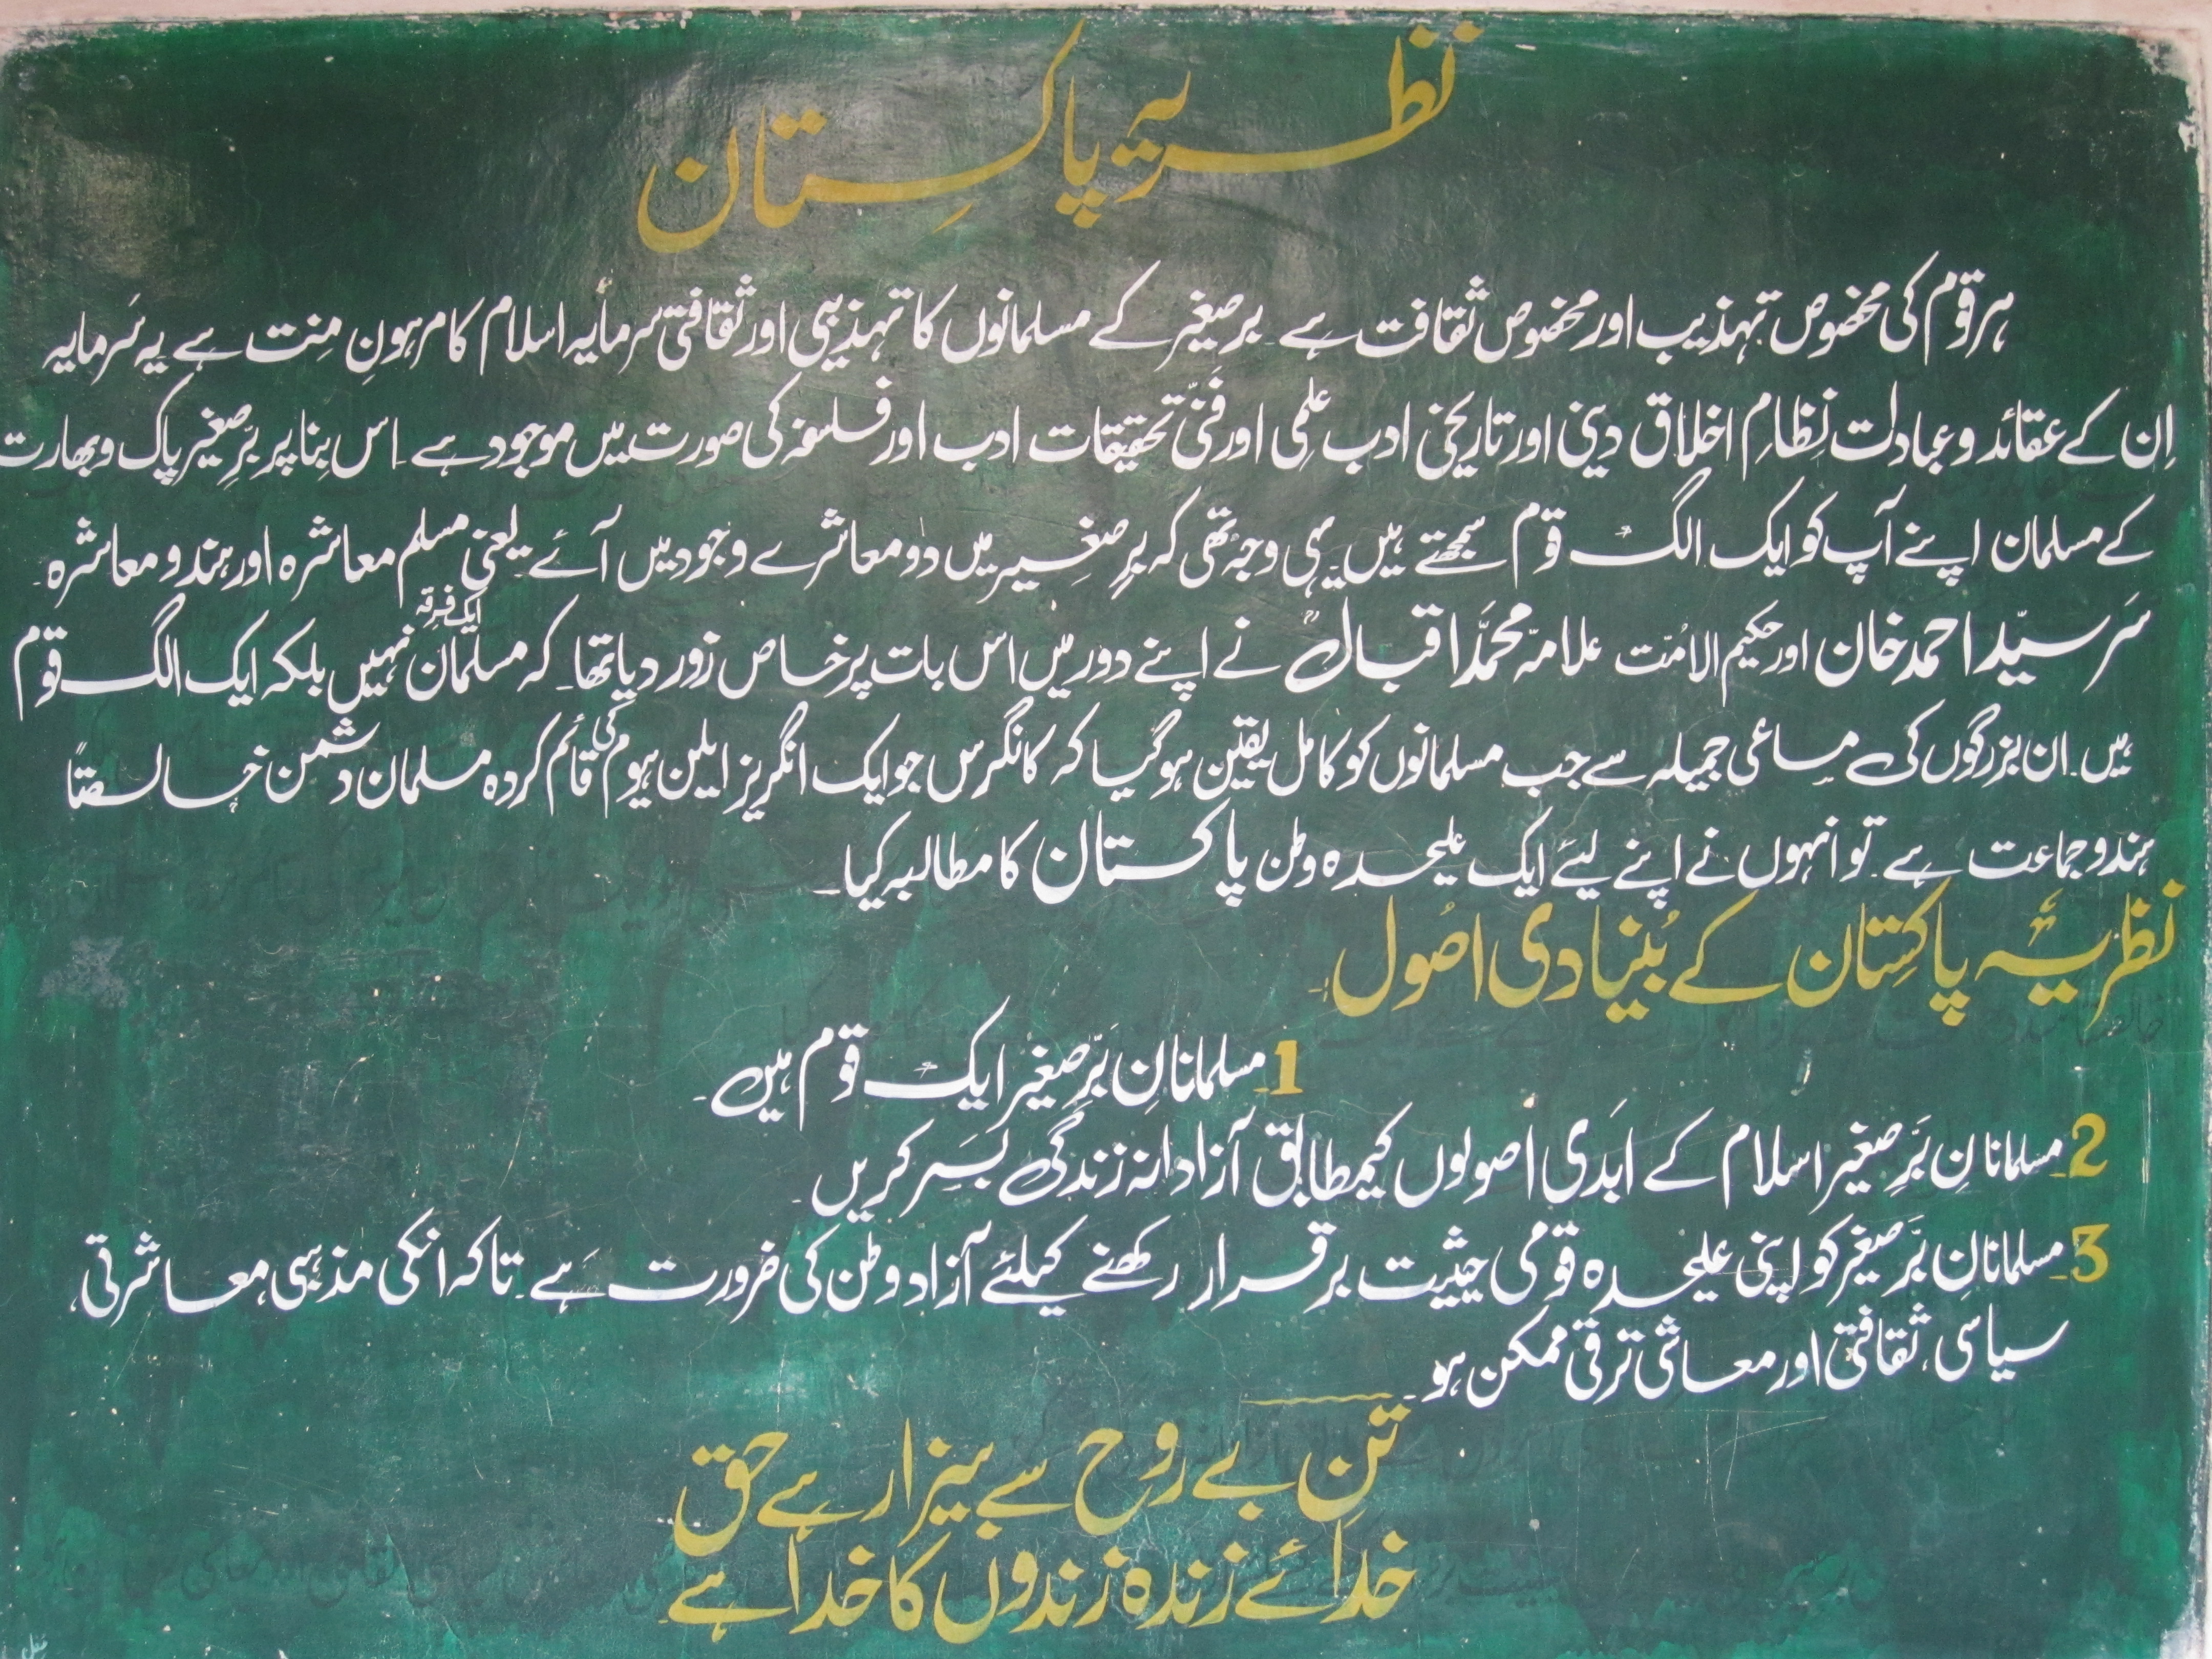 نظریہ پاکستان
ہر قوم کی مخصوص تہذیب اور مخصوص ثقافت ہے۔ برصغیر کے مسلمانوں کا تہذیبی اور ثقافتی سرمایہ اسلام کا مرہونِ مِنت ہے۔ یہ سَرمایہ
اِن کے عقائد و عبادات نِظامِ اخلاق دینی اور تاریخی ادب علمی اور فَنّی تحقیقات ادب اور فلسفہ کی صورت میں موجود ہے۔ اس بِنا پر برِّصغیر پاک و بھارت
کے مسلمان اپنے آپ کو ایک الگ قوم سمجھتے ہیں۔ یہی وجہ تھی کہ برِصغیر میں دو معاشرے وجود میں آئے۔ یعنی مسلم معاشرہ اور ہندو معاشرہ۔
سَرسیّد احمد خان اور حکیم الاُمّت علامہ محمّد اقبالؒ نے اپنے دور میں اس بات پر خاص زور دیا تھا۔ کہ مسلمان ایک فرقہ نہیں بلکہ ایک الگ قوم
ہیں۔ ان بزرگوں کی مساعی جمیلہ سے جب مسلمانوں کو کامل یقین ہوگیا کہ کانگرس جو ایک انگریز ایلن ہیوم کی قائم کردہ مسلمان دشمن خالصتاً
ہندو جماعت ہے۔ تو انہوں نے اپنے لیئے ایک علیحدہ وطن پاکستان کا مطالبہ کیا۔
نظریۂ پاکِستان کے بُنیادی اصُول۔
1۔ مسلمانانِ برِّصغیر ایک قوم ہیں۔
2۔ مسلمانانِ برِّصغیر اسلام کے ابَدی اصولوں کیمطابق آزادانہ زندگی بَسَر کریں۔
3۔ مسلمانانِ برِّصغیر کو اپنی علیحدہ قومی حیثیت برقرار رکھنے کیلئے آزاد وطن کی ضرورت ہَے۔ تاکہ انکی مذہبی، معاشرتی،
سیاسی، ثقافتی اور معاشی ترقی ممکن ہو۔
تنِ بے روح سے بیزار ہے حق
خدائے زندہ زندوں کا خدا ہے